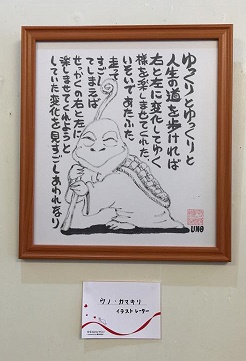 ゆっくりとゆっくりと
人生の道を歩ければ
右と左に変化してゆく
様を楽しませてくれた、
いそいであたふた
走って
すごし
てしまえば
せっかくの右と左に
楽しませてくれようと
していた変化を見すごしあわれなり
UNO
ウノ・カマキリ
イラストレーター